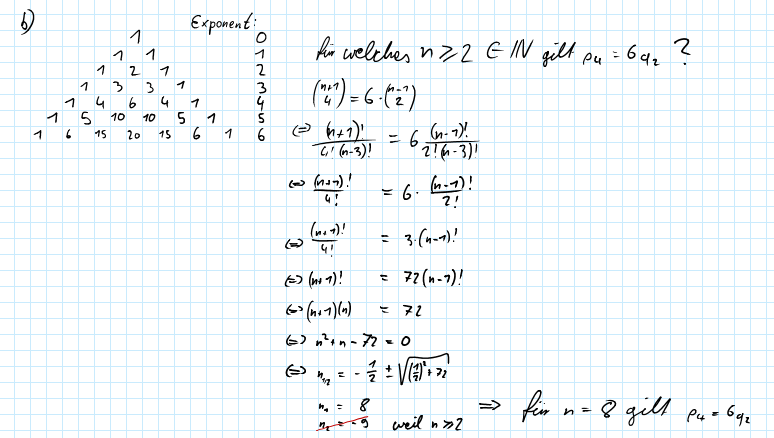 b)
Exponent:
1 0
1 1 1
1 2 1 2
1 3 3 1 3
1 4 6 4 1 4
1 5 10 10 5 1 5
1 6 15 20 15 6 1 6
für welches n ≥ 2 ∈ ℕ gilt p₄ = 6q₂ ?
(n+1 über 4) = 6·(n-1 über 2)
⇔ (n+1)! / 4!(n-3)! = 6 (n-1)! / 2!(n-3)!
⇔ (n+1)! / 4! = 6 · (n-1)! / 2!
⇔ (n+1)! / 4! = 3·(n-1)!
⇔ (n+1)! = 72(n-1)!
⇔ (n+1)(n) = 72
⇔ n² + n - 72 = 0
⇔ n₁/₂ = - 1/2 ± √((1/2)² + 72)
n₁ = 8
n₂ = -9 weil n ≥ 2
⇒ für n = 8 gilt p₄ = 6q₂